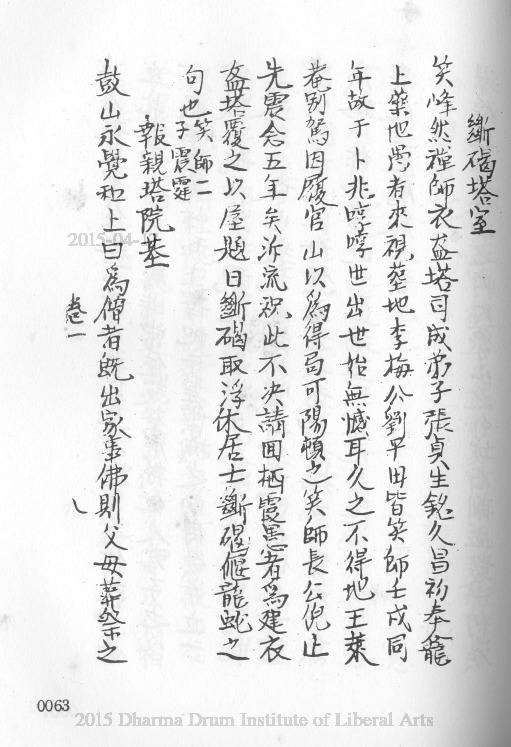 斷碣塔室
笑峰然禪師衣盋塔司成弟子張貞生銘久昌初奉龕
上藥地愚者來視墓地李梅公劉平田皆笑師壬戌同
年故于卜兆哼哼世出世始無憾耳久之不得地王萊
菴別駕因履官山以為得局可陽頓之笑師長公倪止
先震念五年矣泝流視此不决請回栖霞愚者為建衣
盋塔覆之以屋題曰斷碣取浮休居士斷碣偃龍虵之
句也笑師二子震霆
報親塔院基
鼓山永覺和上曰為僧者既出家事佛則父母葬祭之
卷一
2015-04-
0063
2015 Dharma Drum Institute of Liberal Arts